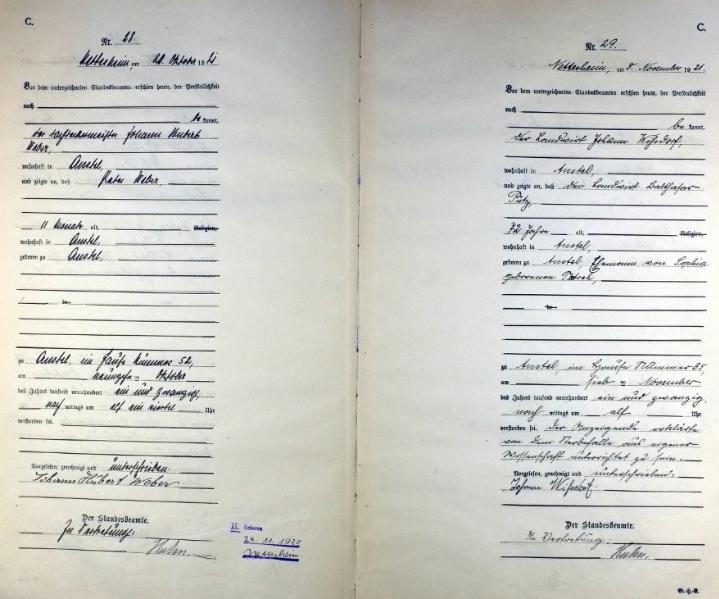 C.
Nr. 28
Nettersheim, am 20. Oktober 1921
Vor dem unterzeichneten Standesbeamten erschien heute, der Persönlichkeit
nach
be kannt,
der Johann Hubert
Weber,
wohnhaft in Amstel,
und zeigte an, daß Weber,
11 Monate alt, Religion,
wohnhaft in Amstel,
geboren zu Amstel,
zu Amstel, im Hause Nummer 52,
am neunzehn ten Oktober
des Jahres tausend neunhundert ein und zwanzig,
nach mittags um elf ein viertel Uhr
verstorben sei.
Vorgelesen, genehmigt und unterschrieben.
Johann Hubert Weber
Der Standesbeamte.
In Vertretung:
H. Geboren
24. 11. 1920
C.
Nr. 29.
Nettersheim, am 8. November 1921
Vor dem unterzeichneten Standesbeamten erschien heute, der Persönlichkeit
nach
be kannt,
der Landwirt Johann
wohnhaft in Amstel,
und zeigte an, daß der Landwirt Balthasar
72 Jahre alt, Religion,
wohnhaft in Amstel,
geboren zu Amstel, Ehemann von Sophia
geborenen
zu Amstel im Hause Nummer 55
am sieb ten November
des Jahres tausend neunhundert ein und zwanzig
nach mittags um elf Uhr
verstorben sei. Der Anzeigende erklärte
von dem Sterbefalle aus eigener
Wissenschaft unterrichtet zu sein.
Vorgelesen, genehmigt und unterschrieben:
Johann
Der Standesbeamte.
In Vertretung: